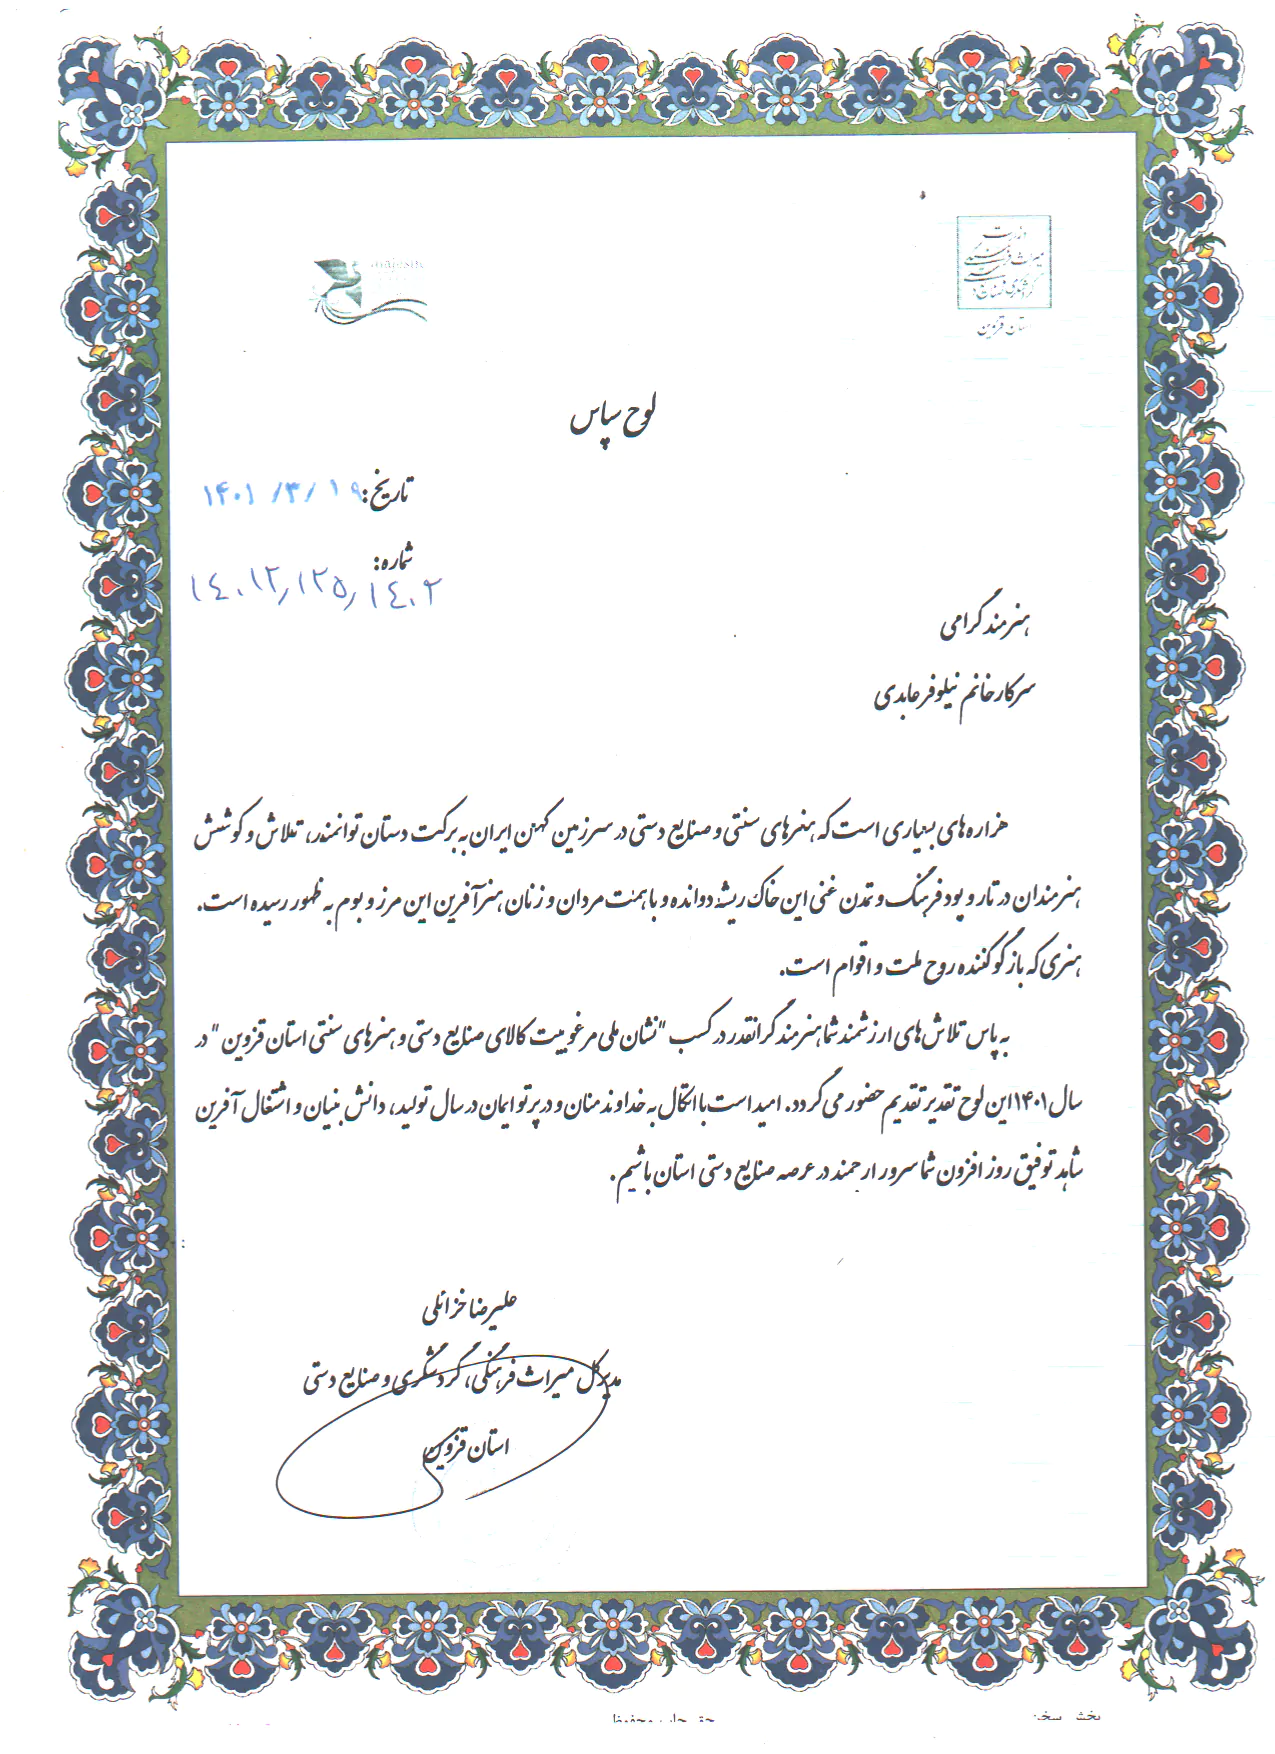 وزارت
میراث فرهنگی
گردشگری و صنایع دستی
استان قزوین
majesdh
لوح سپاس
تاریخ: ۱۴۰۱/۳/۱۹
شماره:
۱۴۰۱۲/۱۲۵/۱۴۰۲
هنرمند گرامی
سرکار خانم نیلوفر عابدی
هزاره های بسیاری است که هنرهای سنتی و صنایع دستی در سرزمین کهن ایران به برکت دستان توانمند، تلاش و کوشش
هنرمندان در تار و پود فرهنگ و تمدن غنی این خاک ریشه دوانده و با همت مردان و زنان هنرآفرین این مرز و بوم به ظهور رسیده است.
هنری که بازگو کننده روح ملت و اقوام است.
به پاس تلاش های ارزشمند شما هنرمند گرانقدر در کسب "نشان ملی مرغوبیت کالای صنایع دستی و هنرهای سنتی استان قزوین" در
سال ۱۴۰۱ این لوح تقدیر تقدیم حضور می گردد. امید است با اتکال به خداوند منان و در پرتو ایمان در سال تولید، دانش بنیان و اشتغال آفرین
شاهد توفیق روز افزون شما سرور ارجمند در عرصه صنایع دستی استان باشیم.
علیرضا خزائلی
مدیرکل میراث فرهنگی، گردشگری و صنایع دستی
استان قزوین
حق چاپ محفوظ
پخش سخن